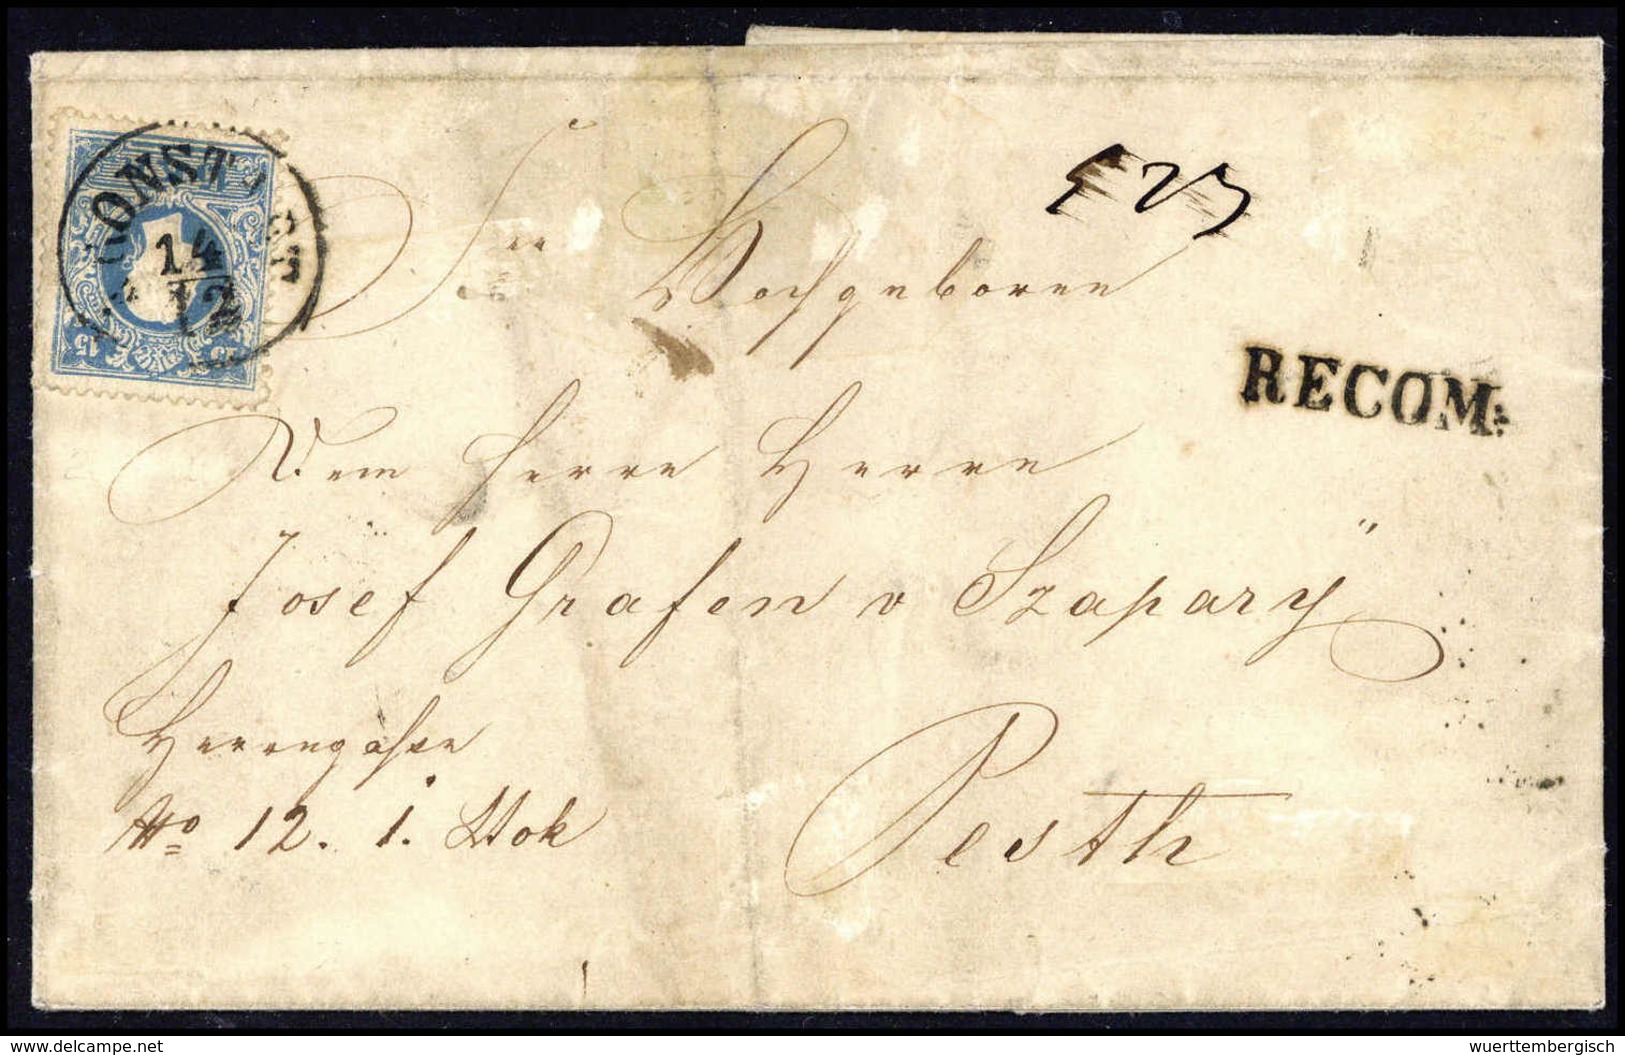 Sr Hochgeboren
RECOM:
Dem Herrn Herrn
Josef Grafen v Szapary"
Herrengasse
No 12. 1. Stok
Pesth
14
12
15
www.delcampe.net
wuerttembergisch